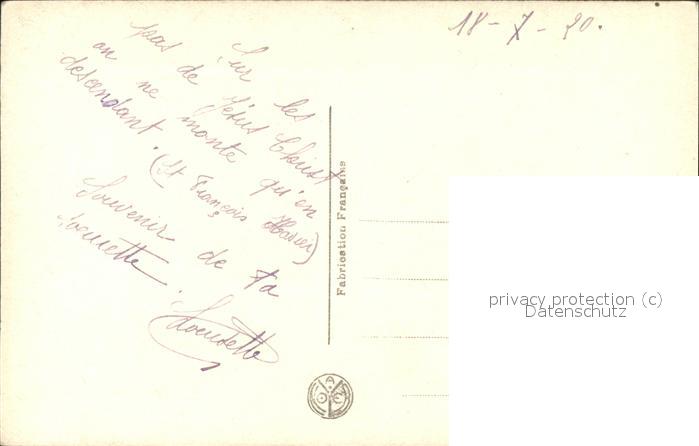 18-7-20.
Sur les
pas de Jésus Christ
on ne monte qu'en
descendant.
(St François Xavier)
Souvenir de ta
Fabrication Française
privacy protection (c)
Datenschutz